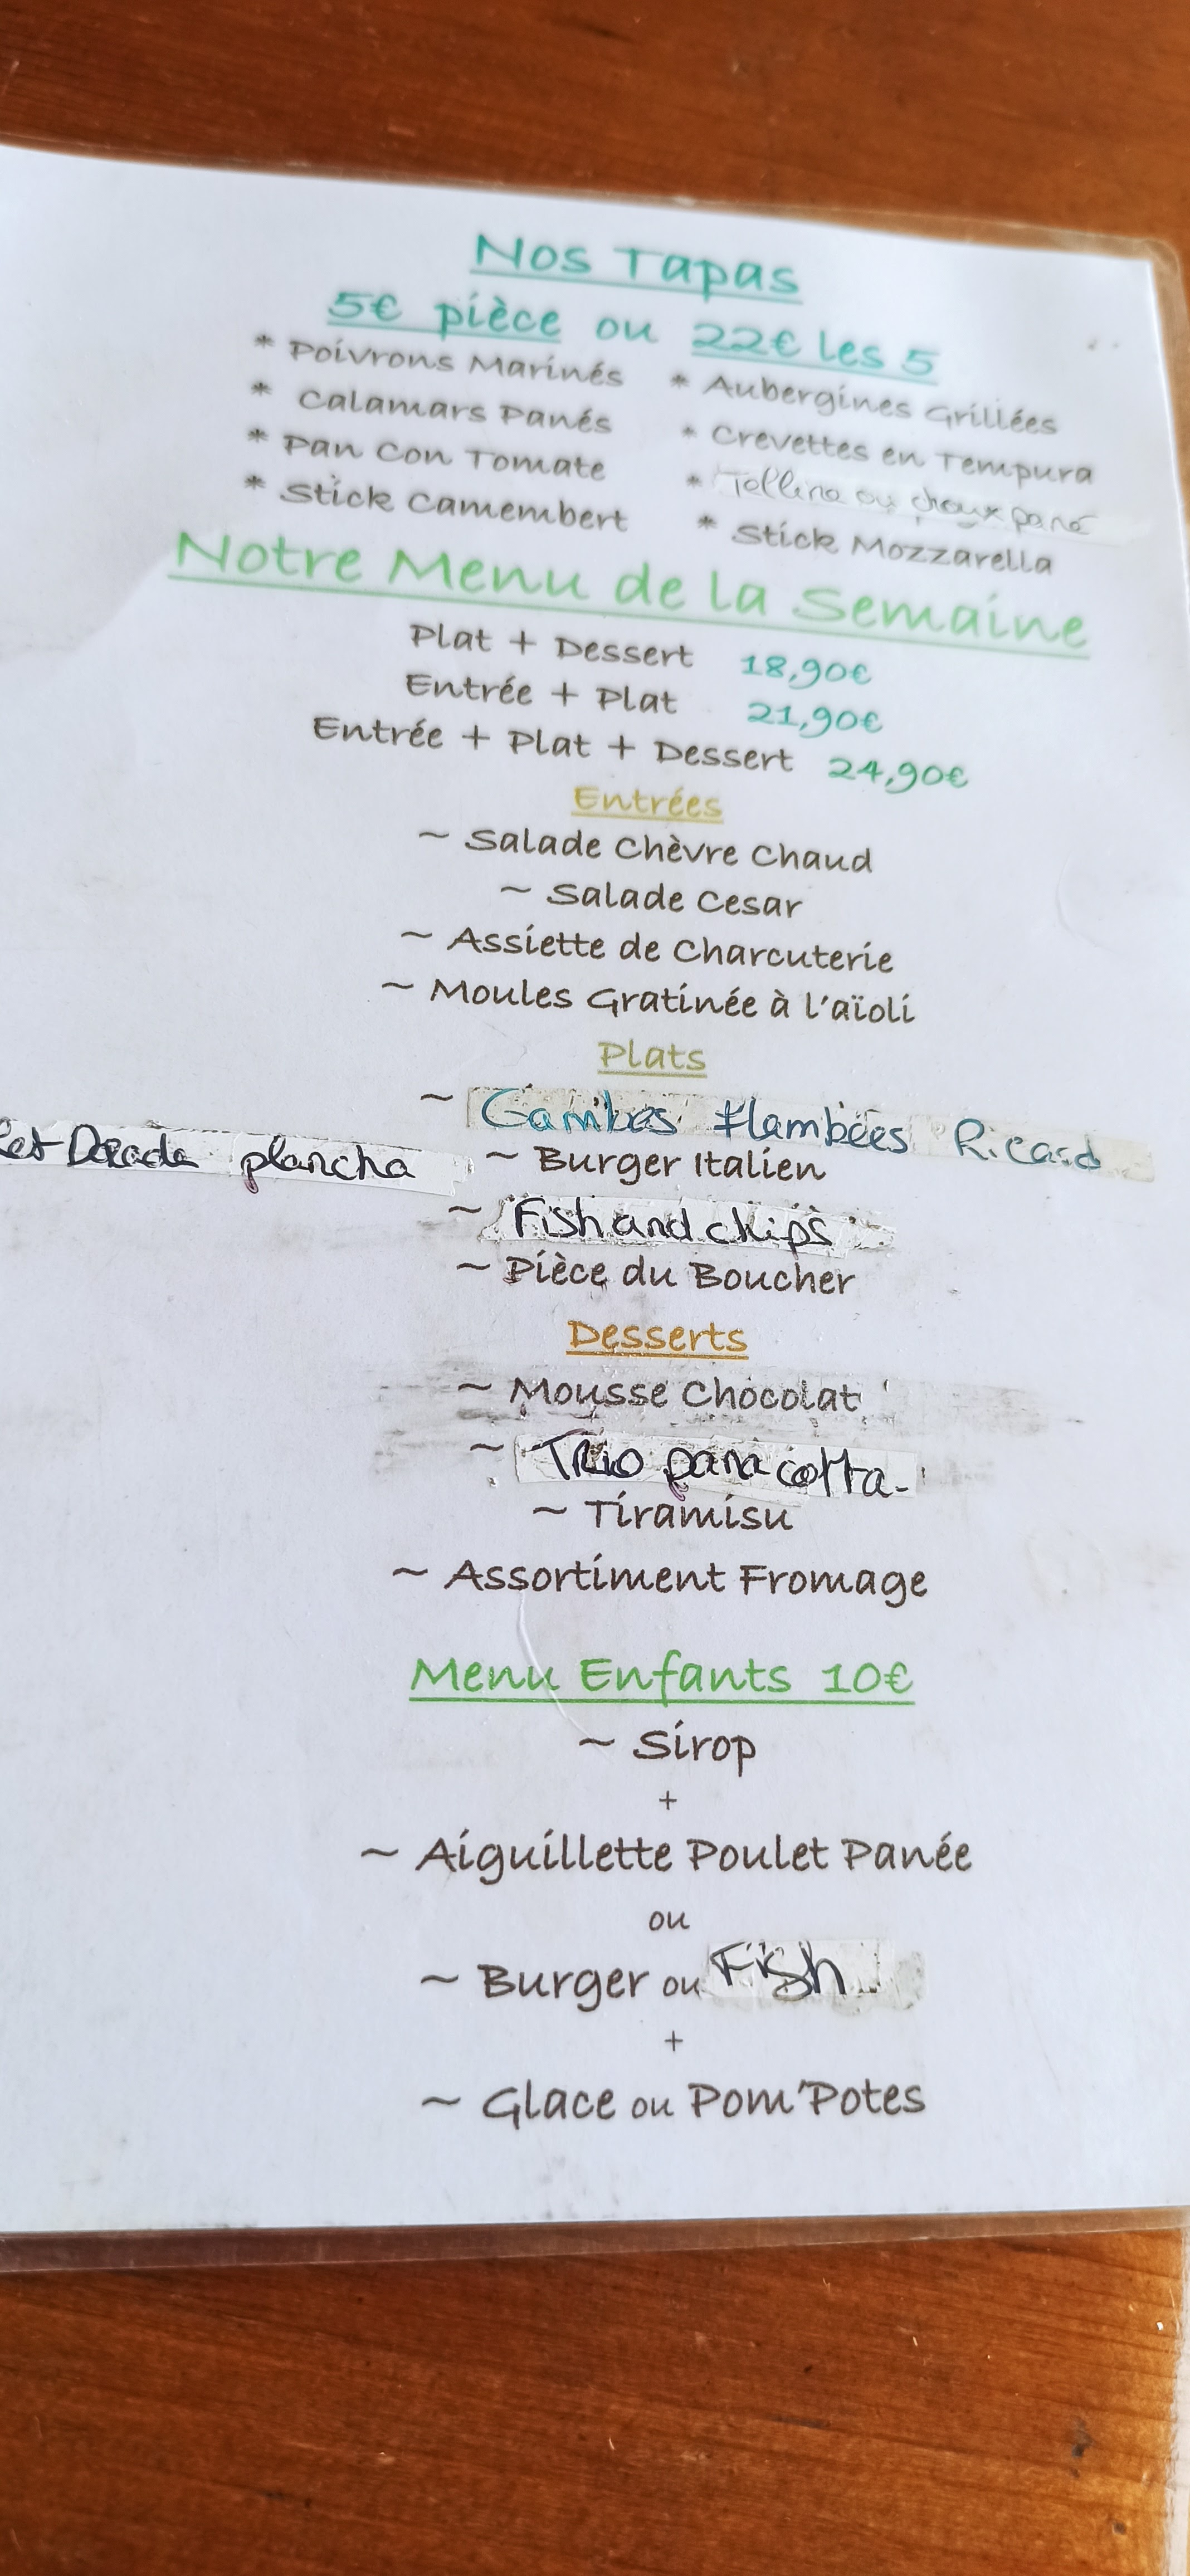 Nos Tapas
5€ pièce ou 22€ les 5
* Poivrons Marinés * Aubergines Grillées
* Calamars Panés * Crevettes en Tempura
* Pan Con Tomate * Telline ou choux pané
* Stick Camembert * Stick Mozzarella
Notre Menu de la Semaine
Plat + Dessert 18,90€
Entrée + Plat 21,90€
Entrée + Plat + Dessert 24,90€
Entrées
~ Salade Chèvre Chaud
~ Salade Cesar
~ Assiette de Charcuterie
~ Moules Gratinée à l'aïoli
Plats
~ Gambas Flambées Ricard
plancha ~ Burger Italien
~ Fish and chips
~ Pièce du Boucher
Desserts
~ Mousse Chocolat
~ Trio pana cotta
~ Tiramisu
~ Assortiment Fromage
Menu Enfants 10€
~ Sirop
+
~ Aiguillette Poulet Panée
ou
~ Burger ou Fish
+
~ Glace ou Pom'Potes